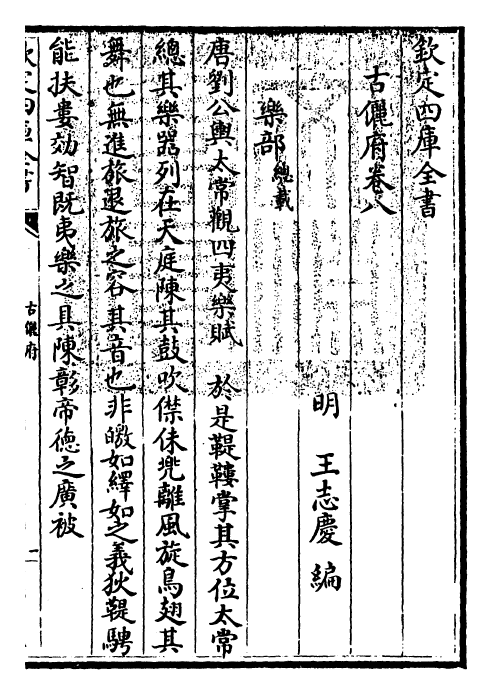 欽定四庫全書
古儷府卷八
明　王志慶　編
樂部總載
唐劉公輿太常觀四夷樂賦　於是鞮鞻掌其方位太常
總其樂器列在天庭陳其鼓吹僸佅兜離風旋鳥翅其
舞也無進旅退旅之容其音也非皦如繹如之義狄鞮騁
能扶婁効智既夷樂之具陳彰帝徳之廣被
欽定四庫全書
古儷府